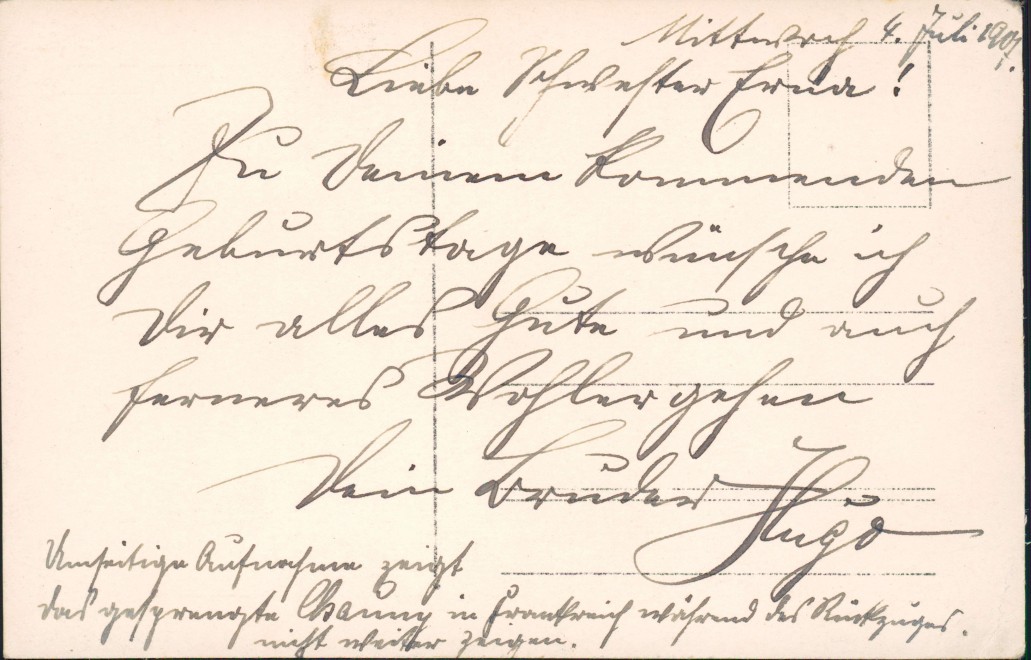 Mittwoch 4. Juli 1917.
Liebe Schwester Erna!
Zu Deinem kommenden
Geburtstage wünsche ich
Dir alles Gute und auch
ferneres Wohlergehen
Dein Bruder Hugo
Umseitige Aufnahme zeigt
das gesprengte Chauny in Frankreich während des Rückzuges.
nicht weiter zeigen.